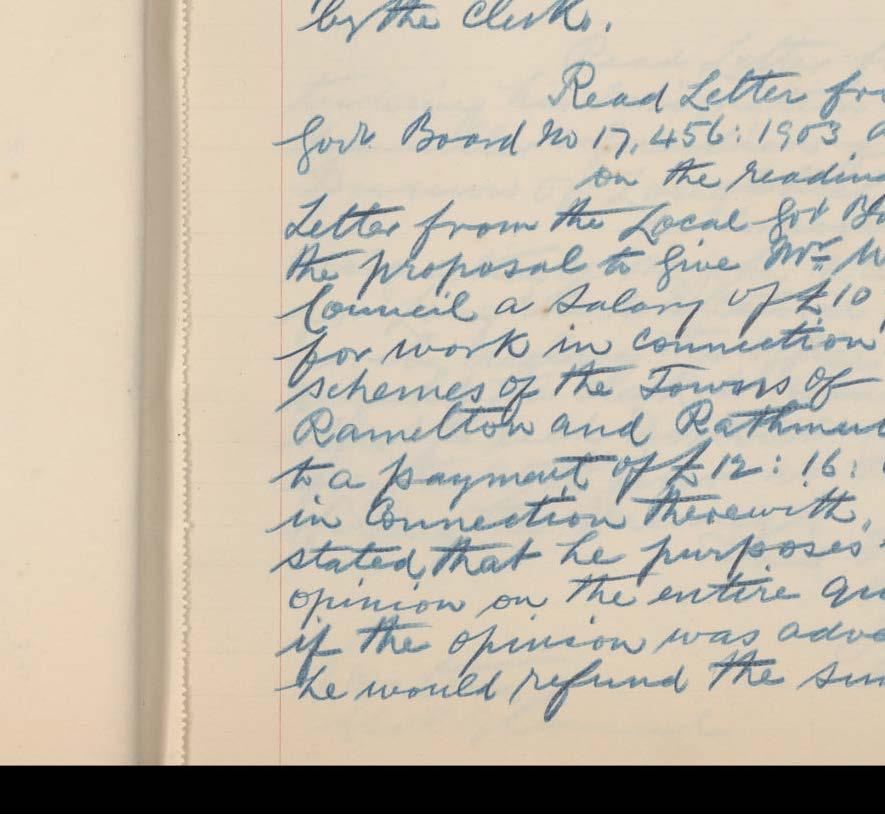 by the Clerk.
Read Letter fro
Govt. Board No 17,456: 1903 a
on the readin
Letter from the Local Govt Bo
the proposal to give Mr. W
Council a salary of £10
for work in connection
schemes of the Towns of
Ramelton and Rathmul
to a payment of £12: 16:
in Connection therewith,
stated that he purposes
opinion on the entire qu
if the opinion was adve
he would refund the sum